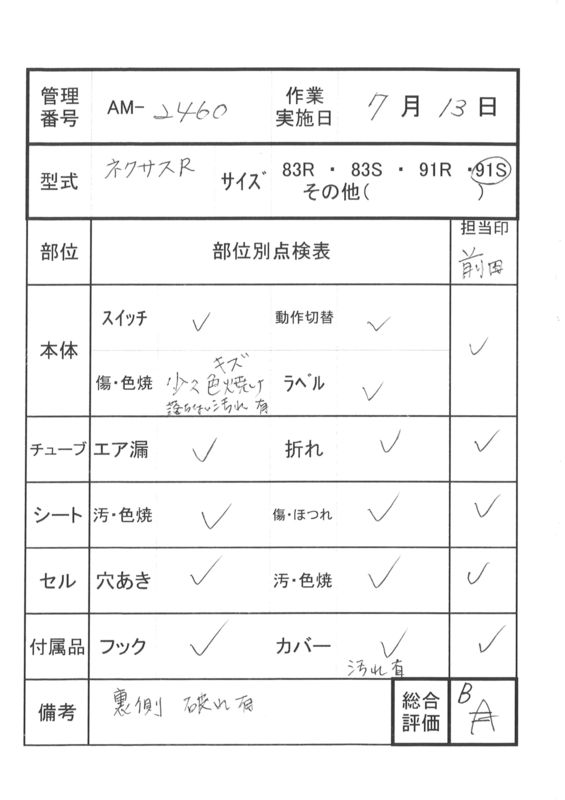 管理番号 AM-2460 作業実施日 7月13日
型式 ネクサスR サイズ 83R ・ 83S ・ 91R ・ 91S
その他( )
部位 部位別点検表 担当印
前田
本体 スイッチ ✓ 動作切替 ✓ ✓
キズ
傷・色焼 少々色焼け ラベル ✓
落ちない汚れ 有
チューブ エア漏 ✓ 折れ ✓ ✓
シート 汚・色焼 ✓ 傷・ほつれ ✓ ✓
セル 穴あき ✓ 汚・色焼 ✓ ✓
付属品 フック ✓ カバー ✓ ✓
汚れ有
備考 裏側 破れ有 総合評価 B A